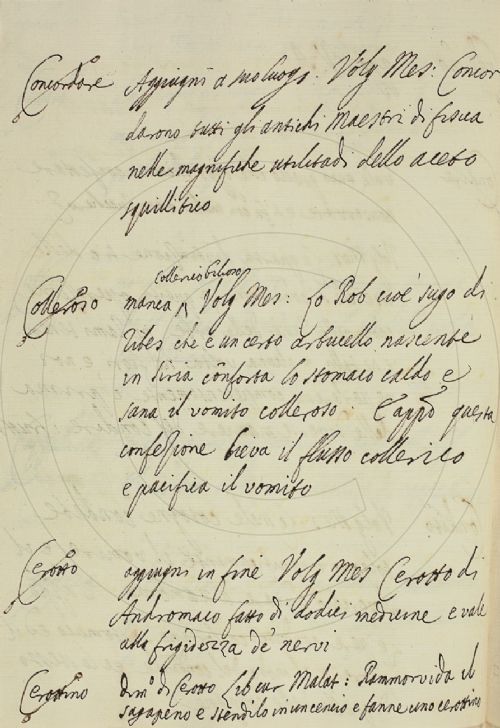 Concordare Aggiugni a suo luogo. Volg Mes: Concor
darono tutti gli antichi Maestri di fisica
nelle magnifiche utilitadi dello aceto
squillitico
collerico bilioso
Colleroso manca Volg Mes: Lo Rob cioè sugo di
ribes che è un certo arbucello nascente
in Siria cōnforta lo stomaco caldo e
sana il vomito colleroso. E appo questa
confezione lieva il flusso collerico
e pacifica il vomito
Cerotto aggiugni in fine Volg Mes Cerotto di
Andromaco fatto di dodici medicine e vale
alla frigidezza de' nervi
Cerottino dim. di Cerotto Lib cur Malat: Rammorvida il
sagapeno e stendilo in un cencio e fanne uno cerottino